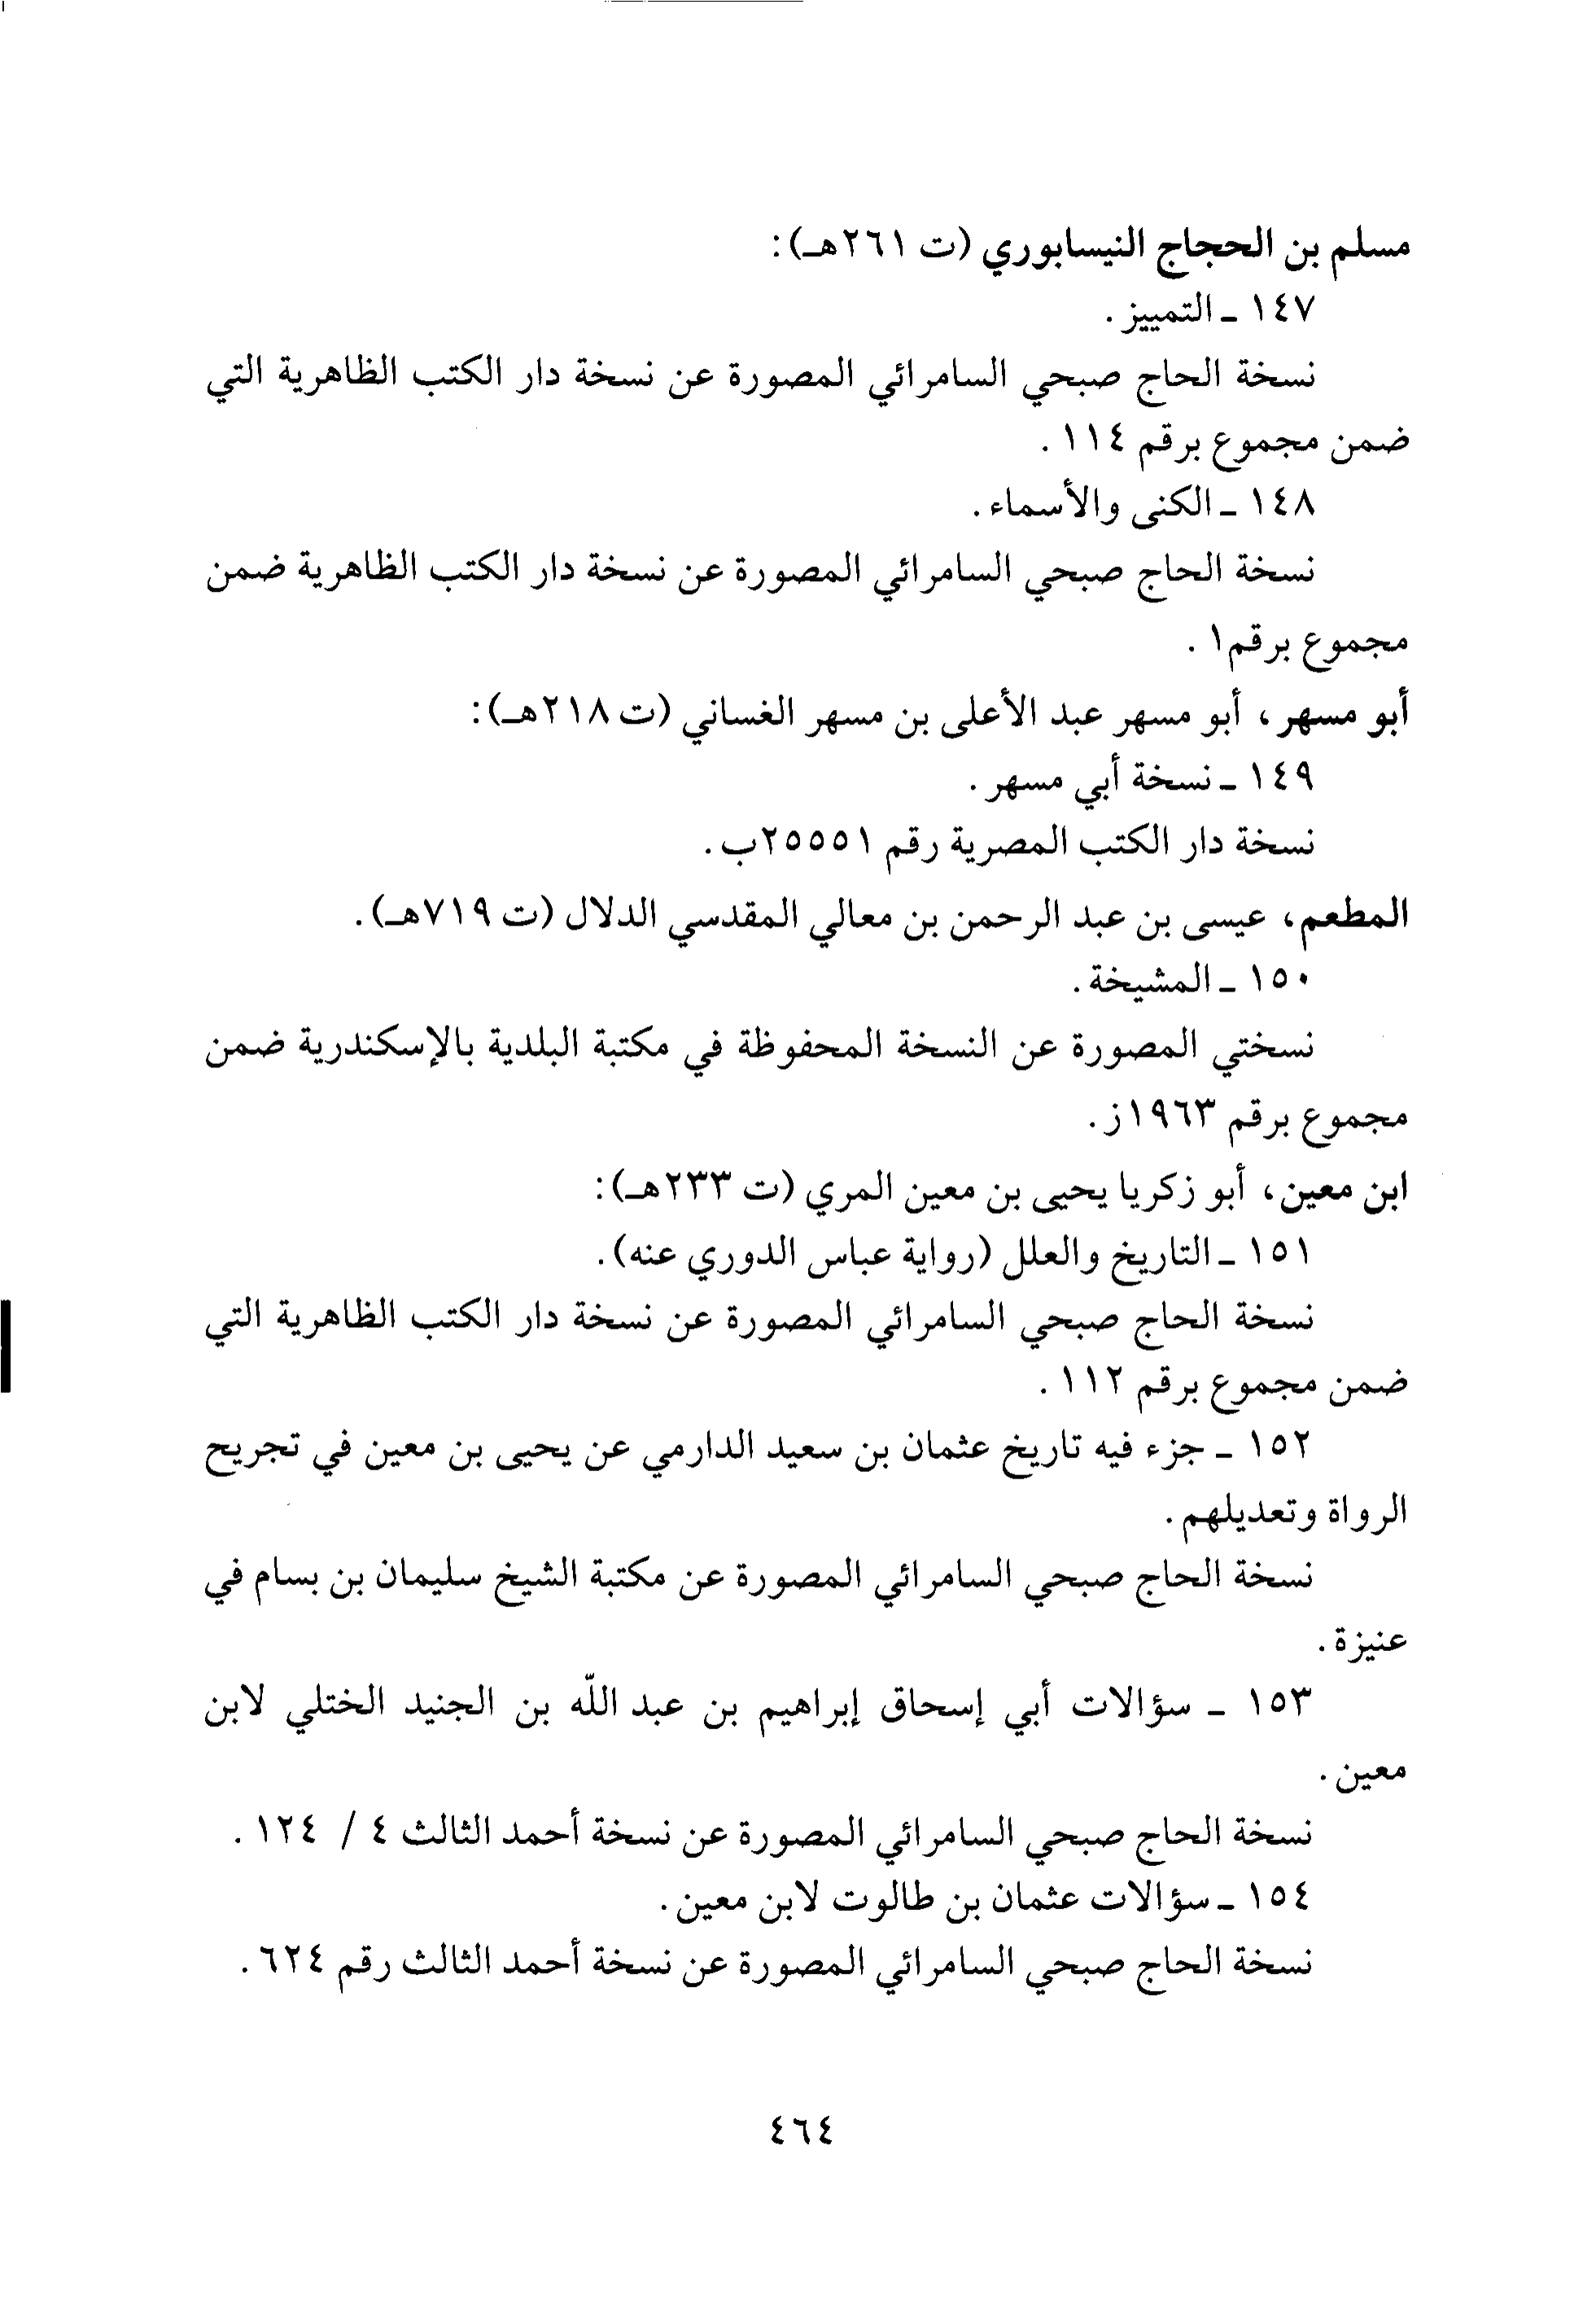 مسلم بن الحجاج النيسابوري (ت ٢٦١هـ):
١٤٧ ـ التمييز .
نسخة الحاج صبحي السامرائي المصورة عن نسخة دار الكتب الظاهرية التي
ضمن مجموع برقم ١١٤ .
١٤٨ ـ الكنى والأسماء .
نسخة الحاج صبحي السامرائي المصورة عن نسخة دار الكتب الظاهرية ضمن
مجموع برقم١ .
أبو مسهر، أبو مسهر عبد الأعلى بن مسهر الغساني (ت ٢١٨هـ):
١٤٩ ـ نسخة أبي مسهر .
نسخة دار الكتب المصرية رقم ٢٥٥٥١ب .
المطعم، عيسى بن عبد الرحمن بن معالي المقدسي الدلال (ت ٧١٩هـ) .
١٥٠ ـ المشيخة .
نسختي المصورة عن النسخة المحفوظة في مكتبة البلدية بالإسكندرية ضمن
مجموع برقم ١٩٦٣ز .
ابن معين، أبو زكريا يحيى بن معين المري (ت ٢٣٣هـ):
١٥١ ـ التاريخ والعلل (رواية عباس الدوري عنه) .
نسخة الحاج صبحي السامرائي المصورة عن نسخة دار الكتب الظاهرية التي
ضمن مجموع برقم ١١٢ .
١٥٢ ـ جزء فيه تاريخ عثمان بن سعيد الدارمي عن يحيى بن معين في تجريح
الرواة وتعديلهم .
نسخة الحاج صبحي السامرائي المصورة عن مكتبة الشيخ سليمان بن بسام في
عنيزة .
١٥٣ ـ سؤالات أبي إسحاق إبراهيم بن عبد اللّه بن الجنيد الختلي لابن
معين .
نسخة الحاج صبحي السامرائي المصورة عن نسخة أحمد الثالث ٤ / ١٢٤ .
١٥٤ ـ سؤالات عثمان بن طالوت لابن معين .
نسخة الحاج صبحي السامرائي المصورة عن نسخة أحمد الثالث رقم ٦٢٤ .
٤٦٤